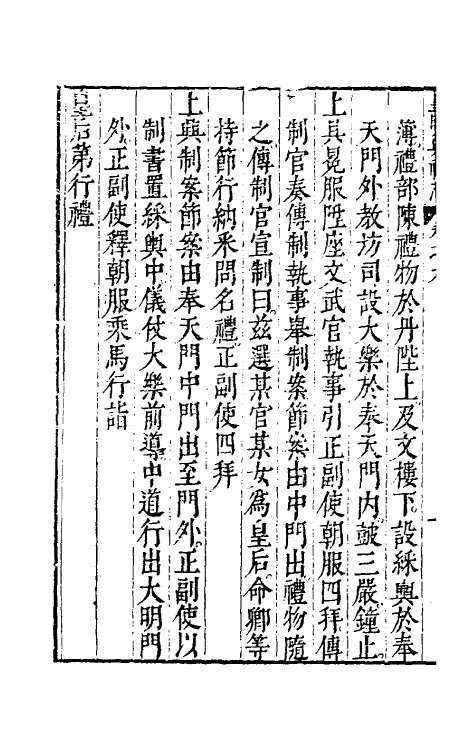 簿禮部陳禮物於丹陛上及文樓下設綵輿於奉
天門外教坊司設大樂於奉天門內鼓三嚴鐘止
上具冕服陞座文武官執事引正副使朝服四拜傳
制官奏傳制執事舉制案節案由中門出禮物隨
之傳制官宣制曰兹選某官某女爲皇后命卿等
持節行納釆問名禮正副使四拜
上興制案節案由奉天門中門出至門外正副使以
制書置綵輿中儀仗大樂前導中道行出大明門
外正副使釋朝服乘馬行詣
皇后第行禮